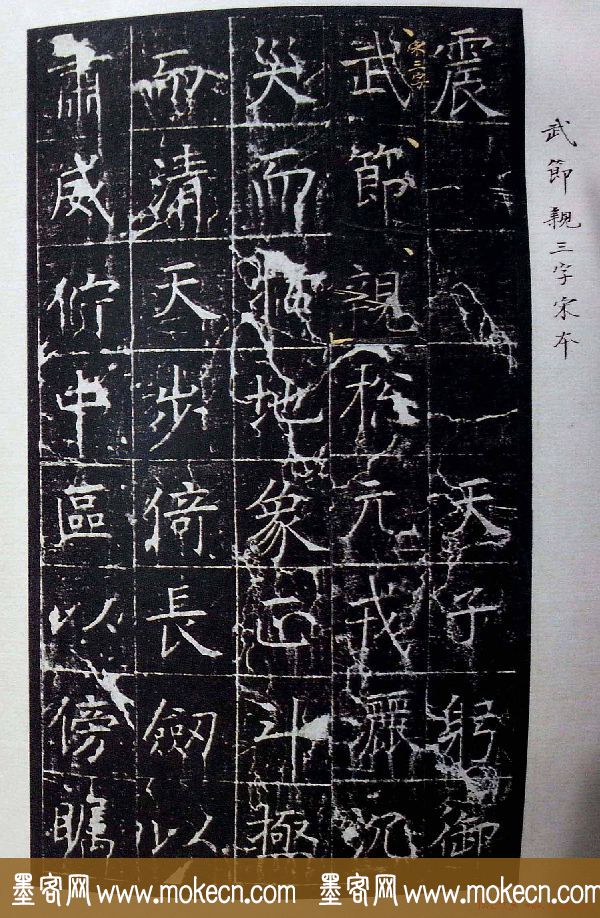 武節親三字宋本
震天子躬御
宋三字
武節親元戎灑沉
災而地象正斗極
而清天步倚長劒以
肅威佇中區以傍矚
墨客网 www.mokecn.com 墨客网 www.mokecn.com